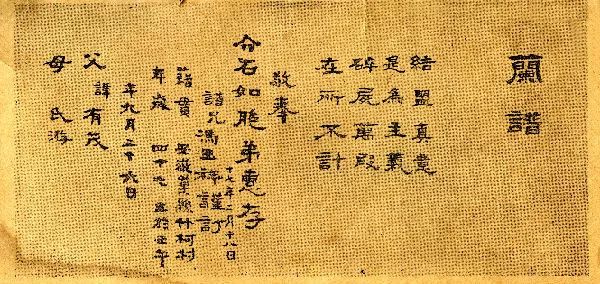 蘭譜
結盟真意
是為主義
碎屍萬段
在所不計
敬奉
介石如胞弟惠存
十七年二月十八日
譜兄馮玉祥謹訂
籍貫 安徽巢縣竹柯村
年歲 四十七 壬午
年九月二十六日
父 諱有茂
母 氏游